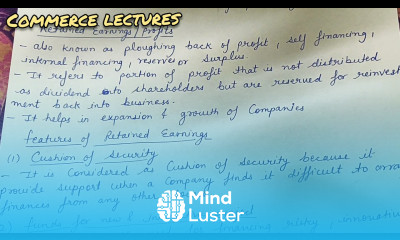 COMMERCE LECTURES
Retained Earnings/Profits
- also known as ploughing back of profit, self financing,
internal financing, reserve or surplus.
- It refers to portion of profit that is not distributed
as dividend to shareholders but are reserved for reinvest
ment back into business.
- It helps in expansion & growth of Companies
features of Retained Earnings
(1) Cushion of Security
- It is Considered as Cushion of Security because it
provide support when a Company finds it difficult to
finances from any other
Mind
Luster